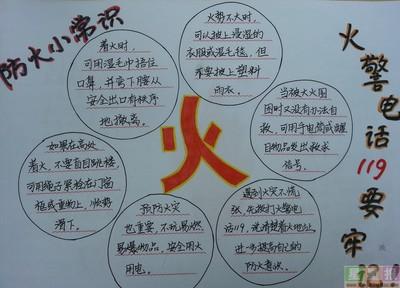 防火小常识
着火时,
可用湿毛巾捂住
口鼻,并弯下腰从
安全出口有秩序
地撤离。
火势不大时,
可以披上浸湿的
衣服或湿毛毯,但
不要披上塑料
雨衣。
当被大火围
困时又没有办法自
救,可用手电筒或醒
目物品发出救求
信号。
如果在高处
着火,不要盲目跳楼,
可用绳子紧栓在门窗
框或重物上,顺势
滑下。
火
预防火灾
也重要,不玩易燃
易爆物品,安全用火
用电。
遇到火灾不慌
张,先拨打火警电
话119,说清楚着火地址。
进一步提高自己的
防火意识。
火警电话119要牢